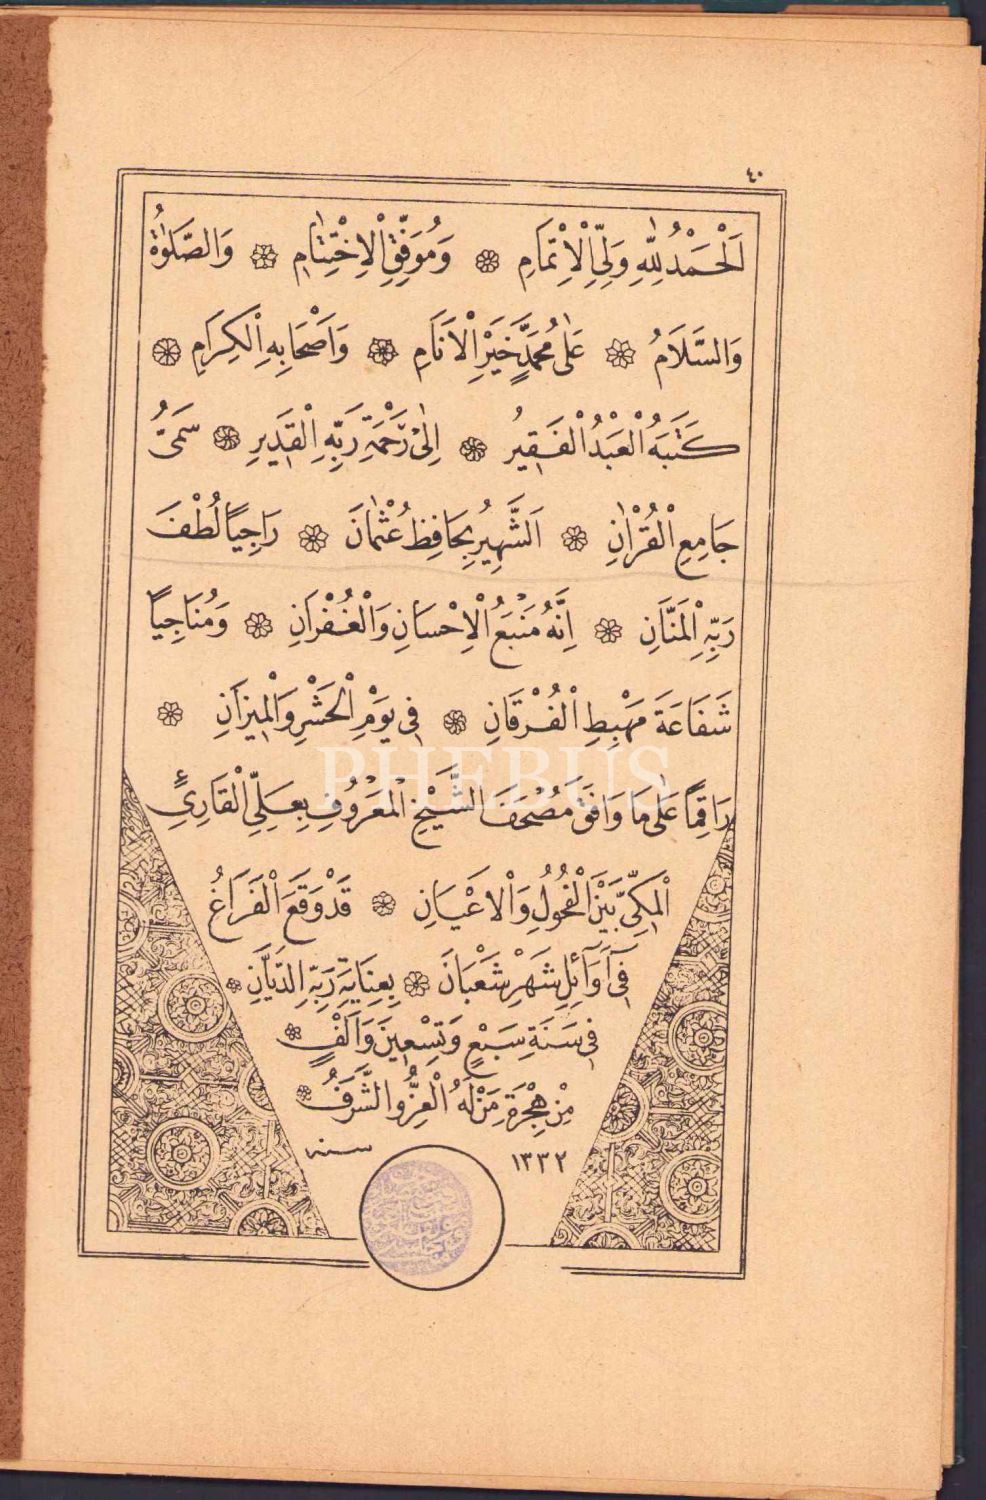 ٤٠
اَلْحَمْدُ لِلّٰهِ وَلِيِّ الْاِتْمَامِ ❁ وَمُوَفِّقِ الْاِخْتِتَامِ ❁ وَالصَّلٰوةُ
وَالسَّلَامُ ❁ عَلٰى مُحَمَّدٍ خَيْرِ الْاَنَامِ ❁ وَاَصْحَابِهِ الْكِرَامِ ❁
كَتَبَهُ الْعَبْدُ الْفَقِيرُ ❁ اِلٰى رَحْمَةِ رَبِّهِ الْقَدِيرِ ❁ سَمِيُّ
جَامِعِ الْقُرْاٰنِ ❁ اَلشَّهِيرُ بِحَافِظِ عُثْمَانَ ❁ رَاجِيًا لُطْفَ
رَبِّهِ الْمَنَّانِ ❁ اِنَّهُ مَنْبَعُ الْاِحْسَانِ وَالْغُفْرَانِ ❁ وَمُنَاجِيًا
شَفَاعَةَ مَهْبِطِ الْفُرْقَانِ ❁ فِي يَوْمِ الْحَشْرِ وَالْمِيزَانِ ❁
رَاقِمًا عَلٰى مَا وَافَقَ مُصْحَفَ الشَّيْخِ الْمَعْرُوفِ بِعَلِيِّ الْقَارِئِ
الْمَكِّيِّ بَيْنَ الْفُحُولِ وَالْاَعْيَانِ ❁ قَدْ وَقَعَ الْفَرَاغُ
فِي اَوَآئِلِ شَهْرِ شَعْبَانَ ❁ بِعِنَايَةِ رَبِّهِ الدَّيَّانِ ❁
فِي سَنَةِ سَبْعٍ وَتِسْعِينَ وَاَلْفٍ ❁
مِنْ هِجْرَةِ مَنْ لَهُ الْعِزُّ وَالشَّرَفُ ❁
١٣٣٢ سنه
PHEBUS